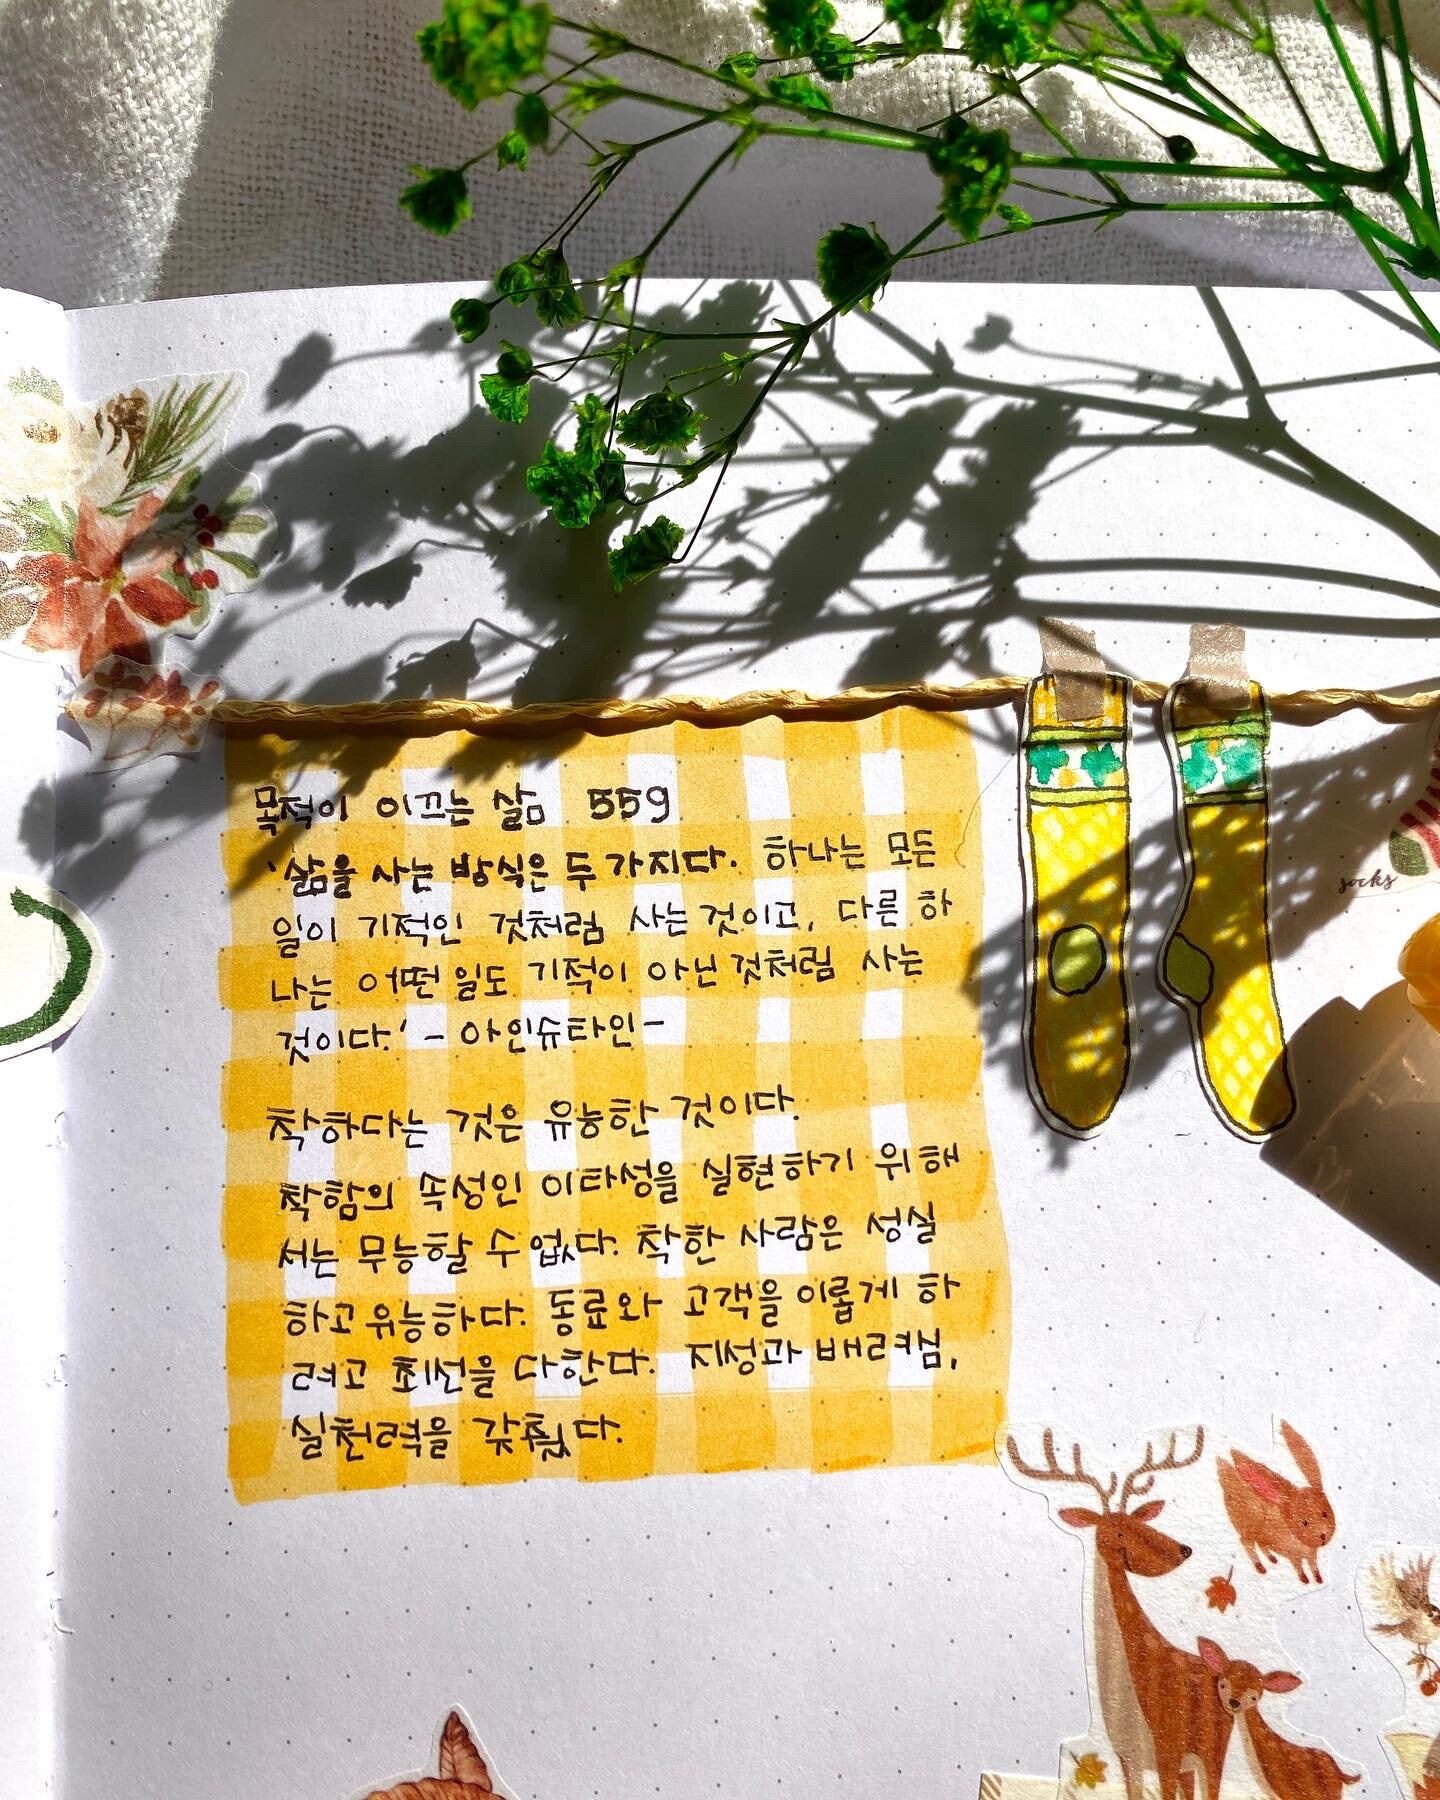 목적이 이끄는 삶 559
'삶을 사는 방식은 두 가지다. 하나는 모든
일이 기적인 것처럼 사는 것이고, 다른 하
나는 어떤 일도 기적이 아닌 것처럼 사는
것이다.' - 아인슈타인-
착하다는 것은 유능한 것이다.
착함의 속성인 이타성을 실현하기 위해
서는 무능할 수 없다. 착한 사람은 성실
하고 유능하다. 동료와 고객을 이롭게 하
려고 최선을 다한다. 지성과 배려심,
실천력을 갖췄다.
socks